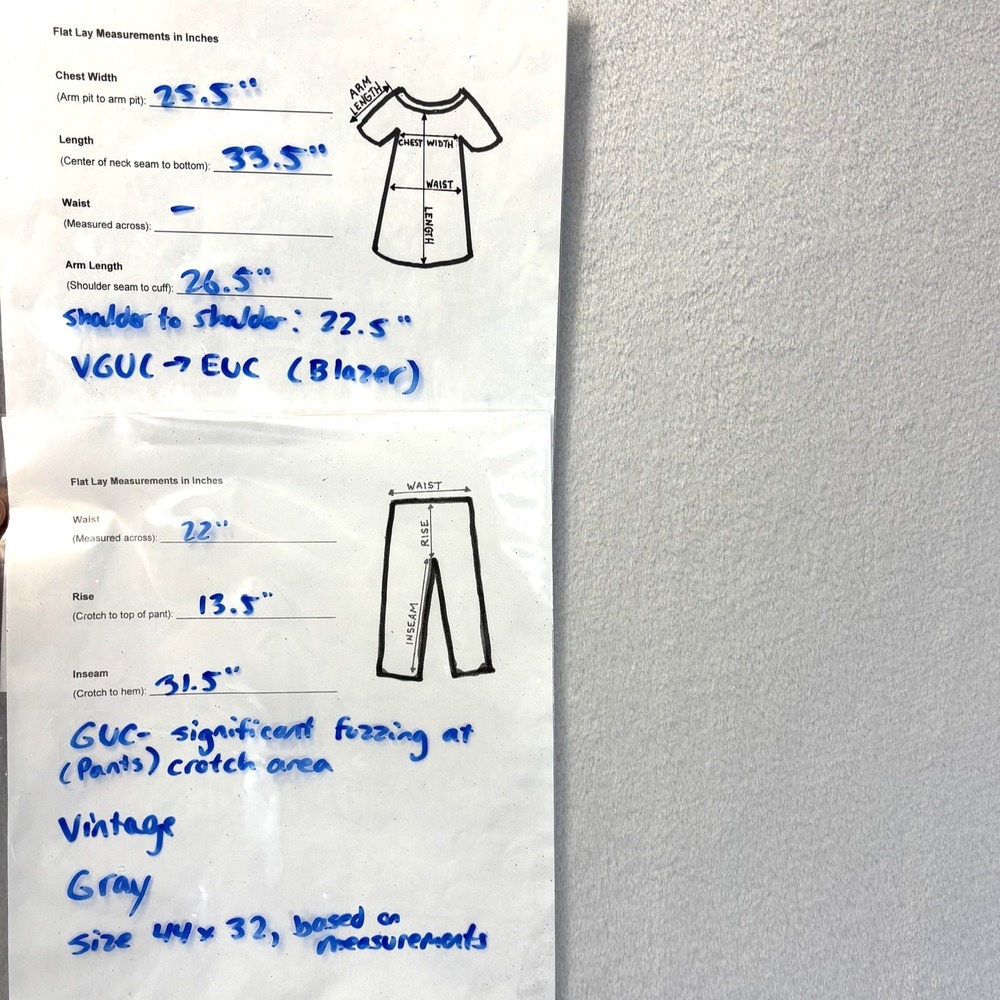 Flat Lay Measurements in Inches
Chest Width
(Arm pit to arm pit): 25.5"
Length
(Center of neck seam to bottom): 33.5"
Waist
(Measured across): -
Arm Length
(Shoulder seam to cuff): 26.5"
ARM LENGTH
CHEST WIDTH
WAIST
LENGTH
Shoulder to Shoulder: 22.5"
VGUC → EUC (Blazer)
Flat Lay Measurements in Inches
Waist
(Measured across): 22"
Rise
(Crotch to top of pant): 13.5"
Inseam
(Crotch to hem): 31.5"
WAIST
RISE
INSEAM
GUC- significant fuzzing at
(Pants) crotch area
Vintage
Gray
Size 44x32, based on
measurements